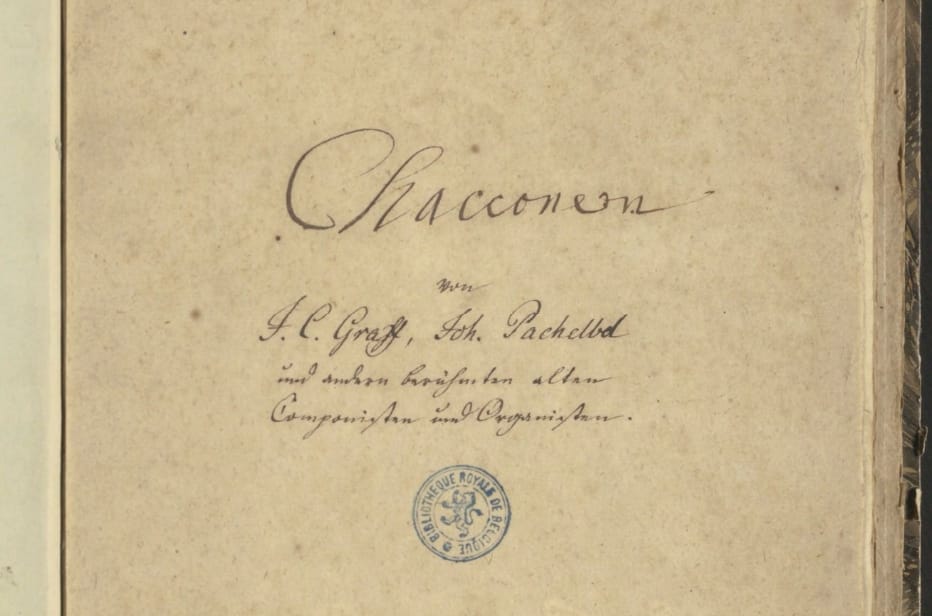 Chacconen
von
J. C. Graff, Joh. Pachelbel
und andern berühmten alten
Componisten und Organisten.
BIBLIOTHÈQUE ROYALE DE BELGIQUE